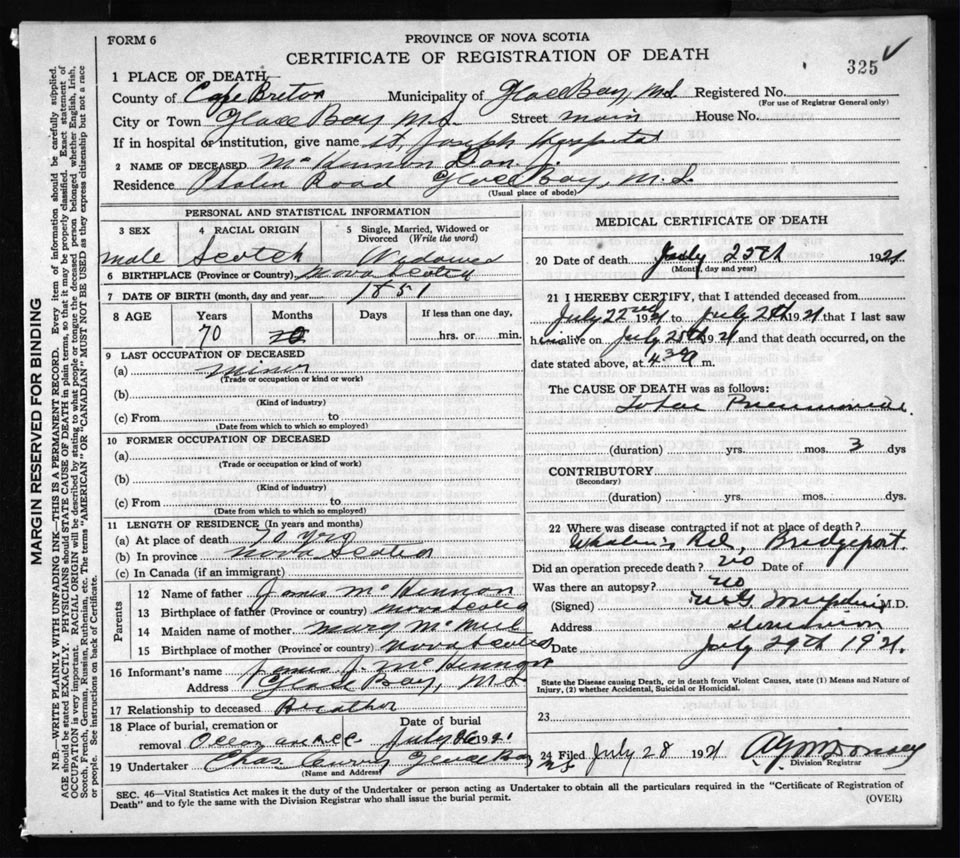 FORM 6
PROVINCE OF NOVA SCOTIA
CERTIFICATE OF REGISTRATION OF DEATH
325
1 PLACE OF DEATH
County of Cape Breton Municipality of Glace Bay, N.S. Registered No.
(For use of Registrar General only)
City or Town Glace Bay N.S. Street main House No.
If in hospital or institution, give name St. Joseph Hospital
2 NAME OF DECEASED McKinnon Dan J.
Residence Road Glace Bay, N.S.
(Usual place of abode)
PERSONAL AND STATISTICAL INFORMATION
3 SEX male
4 RACIAL ORIGIN Scotch
5 Single, Married, Widowed or Divorced (Write the word) Widowed
6 BIRTHPLACE (Province or Country) Nova Scotia
7 DATE OF BIRTH (month, day and year) 1851
8 AGE Years Months Days If less than one day,
70 hrs. or min.
9 LAST OCCUPATION OF DECEASED
(a) miner
(Trade or occupation or kind or work)
(b)
(Kind of industry)
(c) From to
(Date from which to which so employed)
10 FORMER OCCUPATION OF DECEASED
(a)
(Trade or occupation or kind of work)
(b)
(Kind of industry)
(c) From to
(Date from which to which so employed)
11 LENGTH OF RESIDENCE (In years and months)
(a) At place of death 70 yrs
(b) In province Nova Scotia
(c) In Canada (if an immigrant)
Parents
12 Name of father James McKinnon
13 Birthplace of father (Province or country) Nova Scotia
14 Maiden name of mother Mary McNeil
15 Birthplace of mother (Province or country) Nova Scotia
16 Informant's name James J. McKinnon
Address Glace Bay, N.S.
17 Relationship to deceased Brother
18 Place of burial, cremation or removal Date of burial
July 26 1921
19 Undertaker Chas Curry Glace Bay N.S.
(Name and Address)
MEDICAL CERTIFICATE OF DEATH
20 Date of death July 25th 1921
(Month, day and year)
21 I HEREBY CERTIFY, that I attended deceased from
July 22nd 1921 to July 25th 1921 that I last saw
him alive on July 25th 1921 and that death occurred, on
date stated above, at 4.30 m.
The CAUSE OF DEATH was as follows:
Lobar Pneumonia.
(duration) yrs. mos. 3 dys
CONTRIBUTORY
(Secondary)
(duration) yrs. mos. dys.
22 Where was disease contracted if not at place of death?
Rd., Bridgeport.
Did an operation precede death? no Date of
Was there an autopsy? no
(Signed) M.D.
Address Dominion
Date July 29th 1921.
State the Disease causing Death, or in death from Violent Causes, state (1) Means and Nature of
Injury, (2) whether Accidental, Suicidal or Homicidal.
23
24 Filed July 28 1921
Division Registrar
SEC. 46—Vital Statistics Act makes it the duty of the Undertaker or person acting as Undertaker to obtain all the particulars required in the "Certificate of Registration of
Death" and to fyle the same with the Division Registrar who shall issue the burial permit.
(OVER)
MARGIN RESERVED FOR BINDING
N.B.—WRITE PLAINLY WITH UNFADING INK—THIS IS A PERMANENT RECORD. Every item of information should be carefully supplied.
AGE should be stated EXACTLY. PHYSICIANS should STATE CAUSE OF DEATH in plain terms, so that it may be properly classified. Exact statement of
OCCUPATION is very important. RACIAL ORIGIN will be described by stating to what people or tongue the deceased person belonged whether English, Irish,
Scotch, French, German, Russian, Ruthenian, etc. The terms "AMERICAN" OR "CANADIAN" MUST NOT BE USED as they express citizenship but not a race
or people. See instructions on back of Certificate.